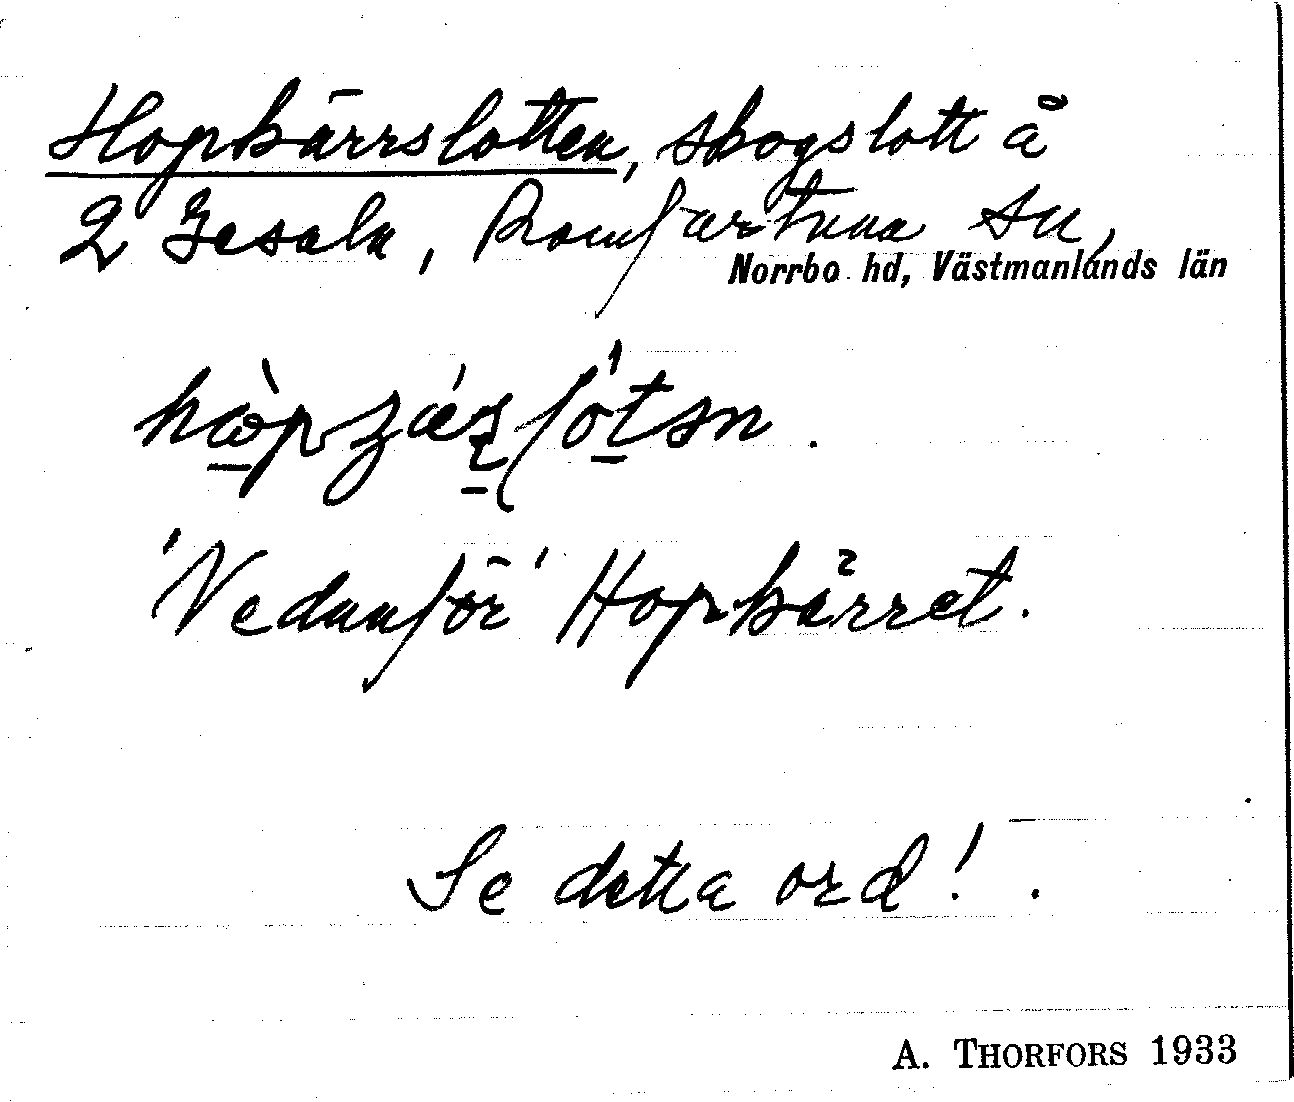 Hopkärrslotten, skogslott å
2 Jesala, Romfartuna sn,
Norrbo hd, Västmanlands län
'Nedanför' Hopkärret.
Se detta ord!
A. THORFORS 1933